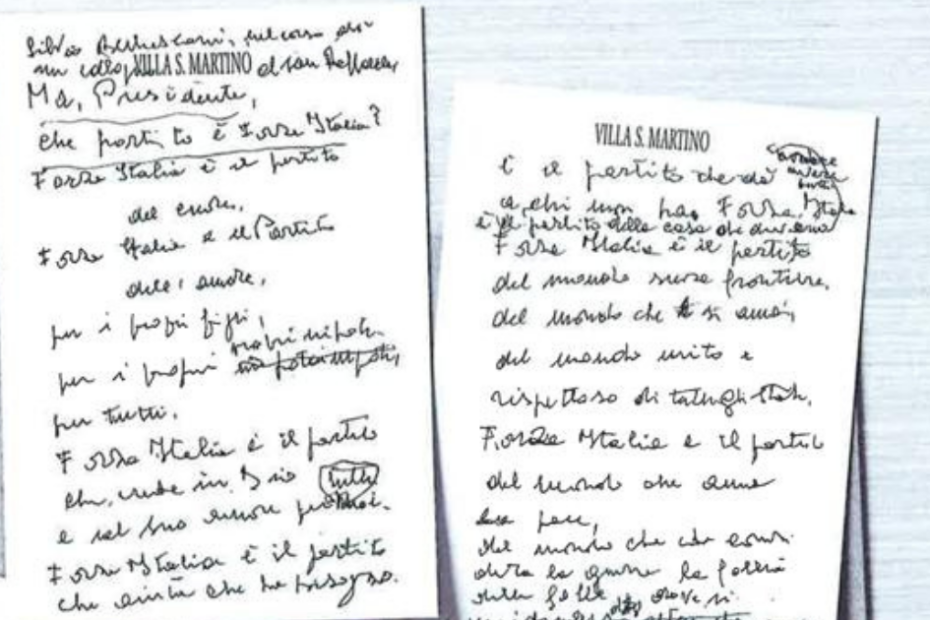 Silvio Berlusconi, nel corso di
un VILLA S. MARTINO al San Raffaele
Ma, Presidente,
che partito è Forza Italia?
Forza Italia è il partito
del cuore,
Forza Italia è il Partito
dell'amore,
per i propri figli,
propri nipoti
per i propri
per tutti.
Forza Italia è il partito
che crede in Dio tutti
e nel suo amore per noi.
Forza Italia è il partito
che aiuta che ha bisogno.
VILLA S. MARTINO
è il partito che dà
a chi non ha, Forza Italia
è il partito della casa di
Forza Italia è il partito
del mondo senza frontiere,
del mondo che si ama,
del mondo unito e
rispettoso di tutti gli Stati,
Forza Italia è il partito
del mondo che ama
la pace,
del mondo che
la guerra la follia
delle follie dove si